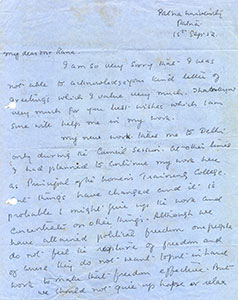 Patna University
Patna
15th Sep. 52
My dear Mr Rana
I am so very sorry that I was
not able to acknowledge your kind letter of
greetings which I value very much. Thank you
very much for your best wishes which I am
sure will help me in my work.
My new work takes me to Delhi
only during the Council Session. At other times
I had planned to continue my work here
as Principal of the Women's Training College.
But things have changed and it is
probable I might give up the work and
concentrate on other things. Although we
have attained political freedom our people
do not feel the rapture of freedom and
of course they do not want to put in hard
work to make that freedom effective. But
we should not give up hope or relax